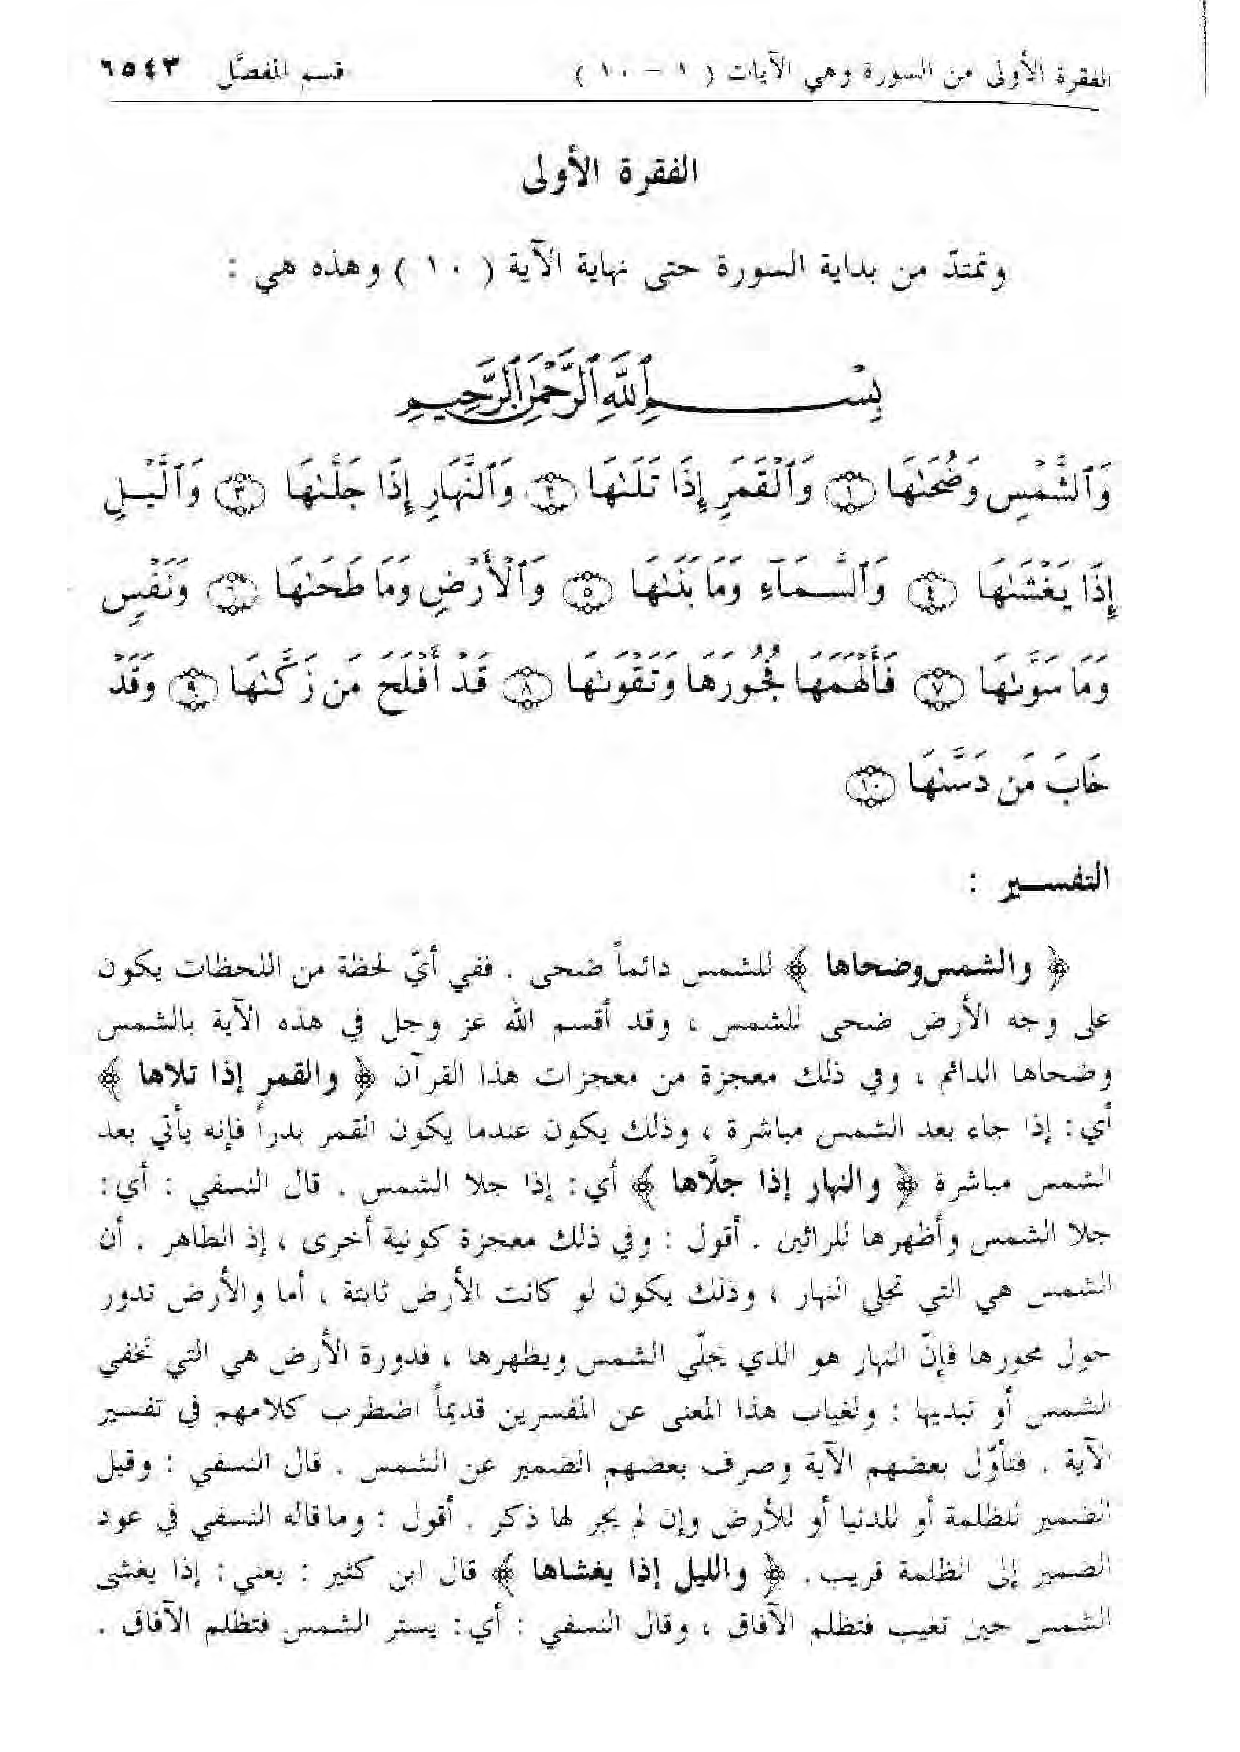 الفقرة الأولى من السورة وهي الآيات ( ١ – ١٠ ) قسم المفصَّل ٦٥٤٣
الفقرة الأولى
وتمتدّ من بداية السورة حتى نهاية الآية ( ١٠ ) وهذه هي :
بِسْمِ ٱللَّهِ ٱلرَّحْمَٰنِ ٱلرَّحِيمِ
وَٱلشَّمْسِ وَضُحَىٰهَا ١ وَٱلْقَمَرِ إِذَا تَلَىٰهَا ٢ وَٱلنَّهَارِ إِذَا جَلَّىٰهَا ٣ وَٱلَّيْلِ
إِذَا يَغْشَىٰهَا ٤ وَٱلسَّمَآءِ وَمَا بَنَىٰهَا ٥ وَٱلْأَرْضِ وَمَا طَحَىٰهَا ٦ وَنَفْسٍ
وَمَا سَوَّىٰهَا ٧ فَأَلْهَمَهَا فُجُورَهَا وَتَقْوَىٰهَا ٨ قَدْ أَفْلَحَ مَن زَكَّىٰهَا ٩ وَقَدْ
خَابَ مَن دَسَّىٰهَا ١٠
التفسير :
﴿ والشمس وضحاها ﴾ للشمس دائماً ضحى . ففي أيّ لحظة من اللحظات يكون
على وجه الأرض ضحى للشمس ، وقد أقسم الله عز وجل في هذه الآية بالشمس
وضحاها الدائم ، وفي ذلك معجزة من معجزات هذا القرآن ﴿ والقمر إذا تلاها ﴾
أي : إذا جاء بعد الشمس مباشرة ، وذلك يكون عندما يكون القمر بدراً فإنه يأتي بعد
الشمس مباشرة ﴿ والنهار إذا جلَّاها ﴾ أي : إذا جلا الشمس . قال النسفي : أي :
جلا الشمس وأظهرها للرائين . أقول : وفي ذلك معجزة كونية أخرى ، إذ الظاهر . أن
الشمس هي التي تجلي النهار ، وذلك يكون لو كانت الأرض ثابتة ، أما والأرض تدور
حول محورها فإنّ النهار هو الذي يجلّي الشمس ويظهرها ، فدورة الأرض هي التي تخفي
الشمس أو تبديها : ولغياب هذا المعنى عن المفسرين قديماً اضطرب كلامهم في تفسير
الآية . فتأوّل بعضهم الآية وصرف بعضهم الضمير عن الشمس . قال النسفي : وقيل
الضمير للظلمة أو للدنيا أو للأرض وإن لم يجر لها ذكر . أقول : وما قاله النسفي في عود
الضمير إلى الظلمة قريب . ﴿ والليل إذا يغشاها ﴾ قال ابن كثير : يعني : إذا يغشى
الشمس حين تغيب فتظلم الآفاق ، وقال النسفي : أي : يستر الشمس فتظلم الآفاق .